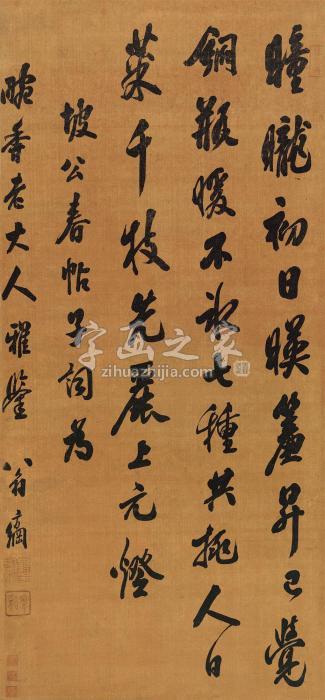 曈曨初日暎簾昇已覺
銅瓶暖不氷七種共挑人日
菜千枝先麗上元燈
坡公春帖子詞為
畹香老大人雅鑒 翁方綱
字画之家
www.zihuazhijia.com